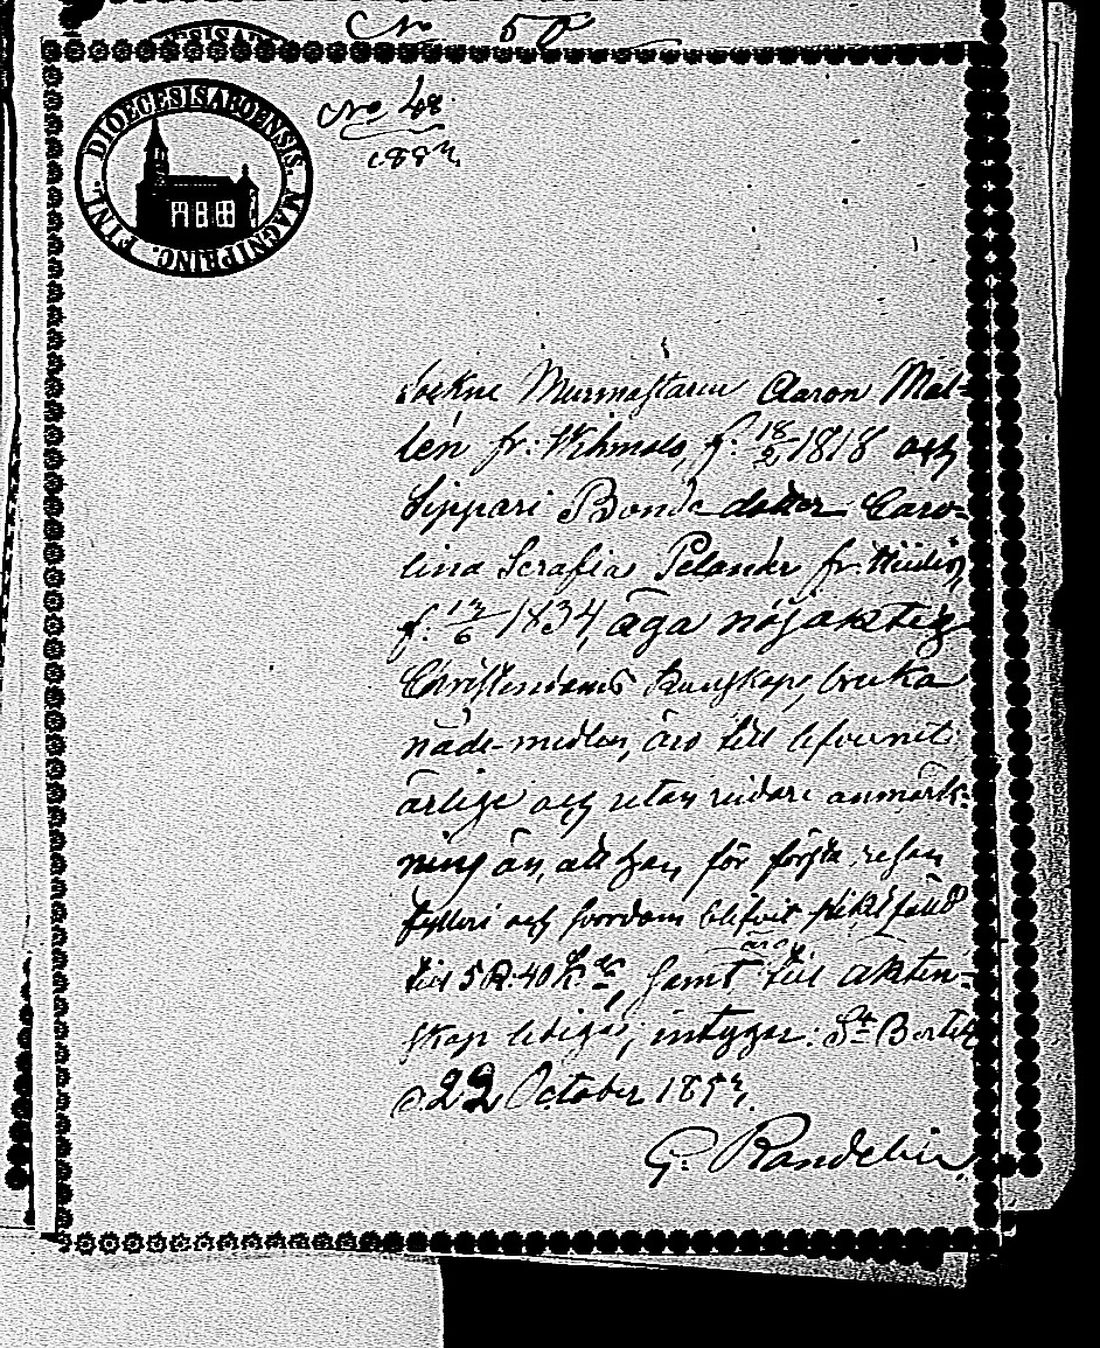 No 50
DIOECESIS ABOENSIS. MAGNI PRINC. FINL.
No 48
1857.
Sockne Murmästaren Aaron Mal-
lén fr: Wehmais, f. 18/2 1818 och
Sippari Bonde dotter Caro-
lina Serafia Pelander fr:
f. 17/6 1834, äga nöjaktig
Christendoms kunskap, bruka
nåde-medlen, äro till lefvernet
ärlige och utan vidare anmärk-
ning än, att han för första resan
fylleri och svordom blifvit pliktfälld
till 5 R. 40 k. Samt äro till äkten-
skap ledige; intygar: St Bertils
d. 22 October 1857.
G. Randelin